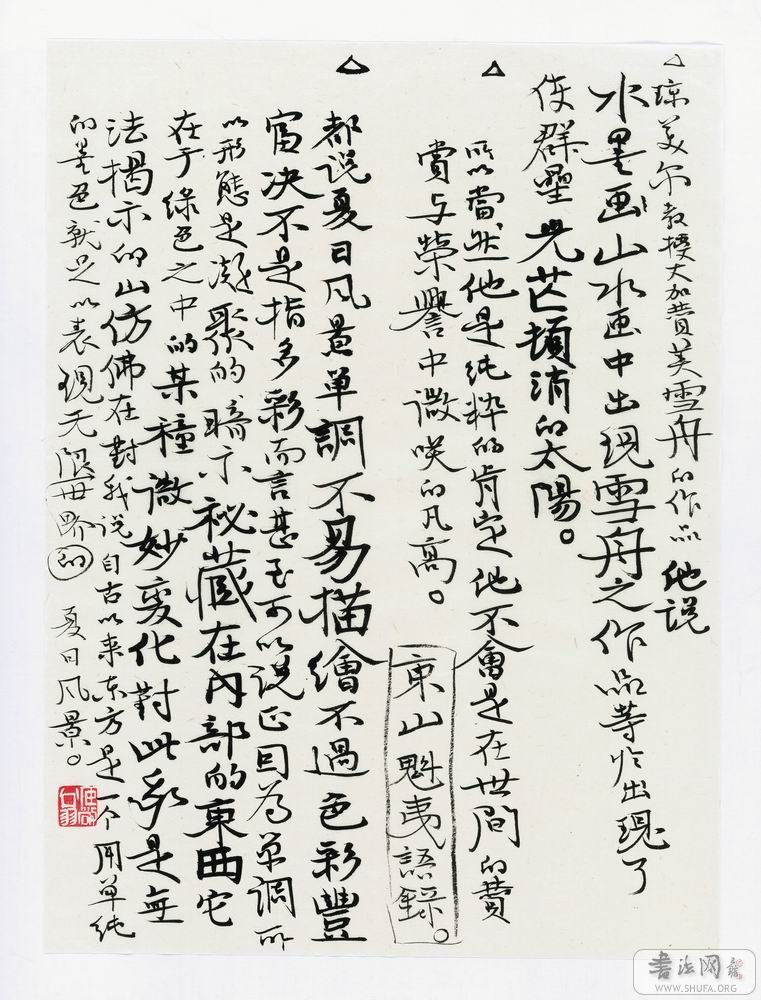 琼美尔教授大加赞美雪舟的作品他说
水墨画山水画中出现雪舟之作品等于出现了
使群星光芒顿消的太陽。
所以當然他是纯粹的肯定他不會是在世間的赞
賞与榮譽中微笑的凡高。
東山魁夷語録。
都说夏日风景单調不易描繪不過色彩豐
富决不是指多彩而言甚至可以说正因為单調所
以形態是凝聚的暗示秘藏在内部的東西它
在于緑色之中的某種微妙变化對此我是無
法揭示的山仿佛在對我说自古以来东方是一个用单纯
的墨色就足以表現无限世界的
夏日风景。
書法网
WWW.SHUFA.ORG